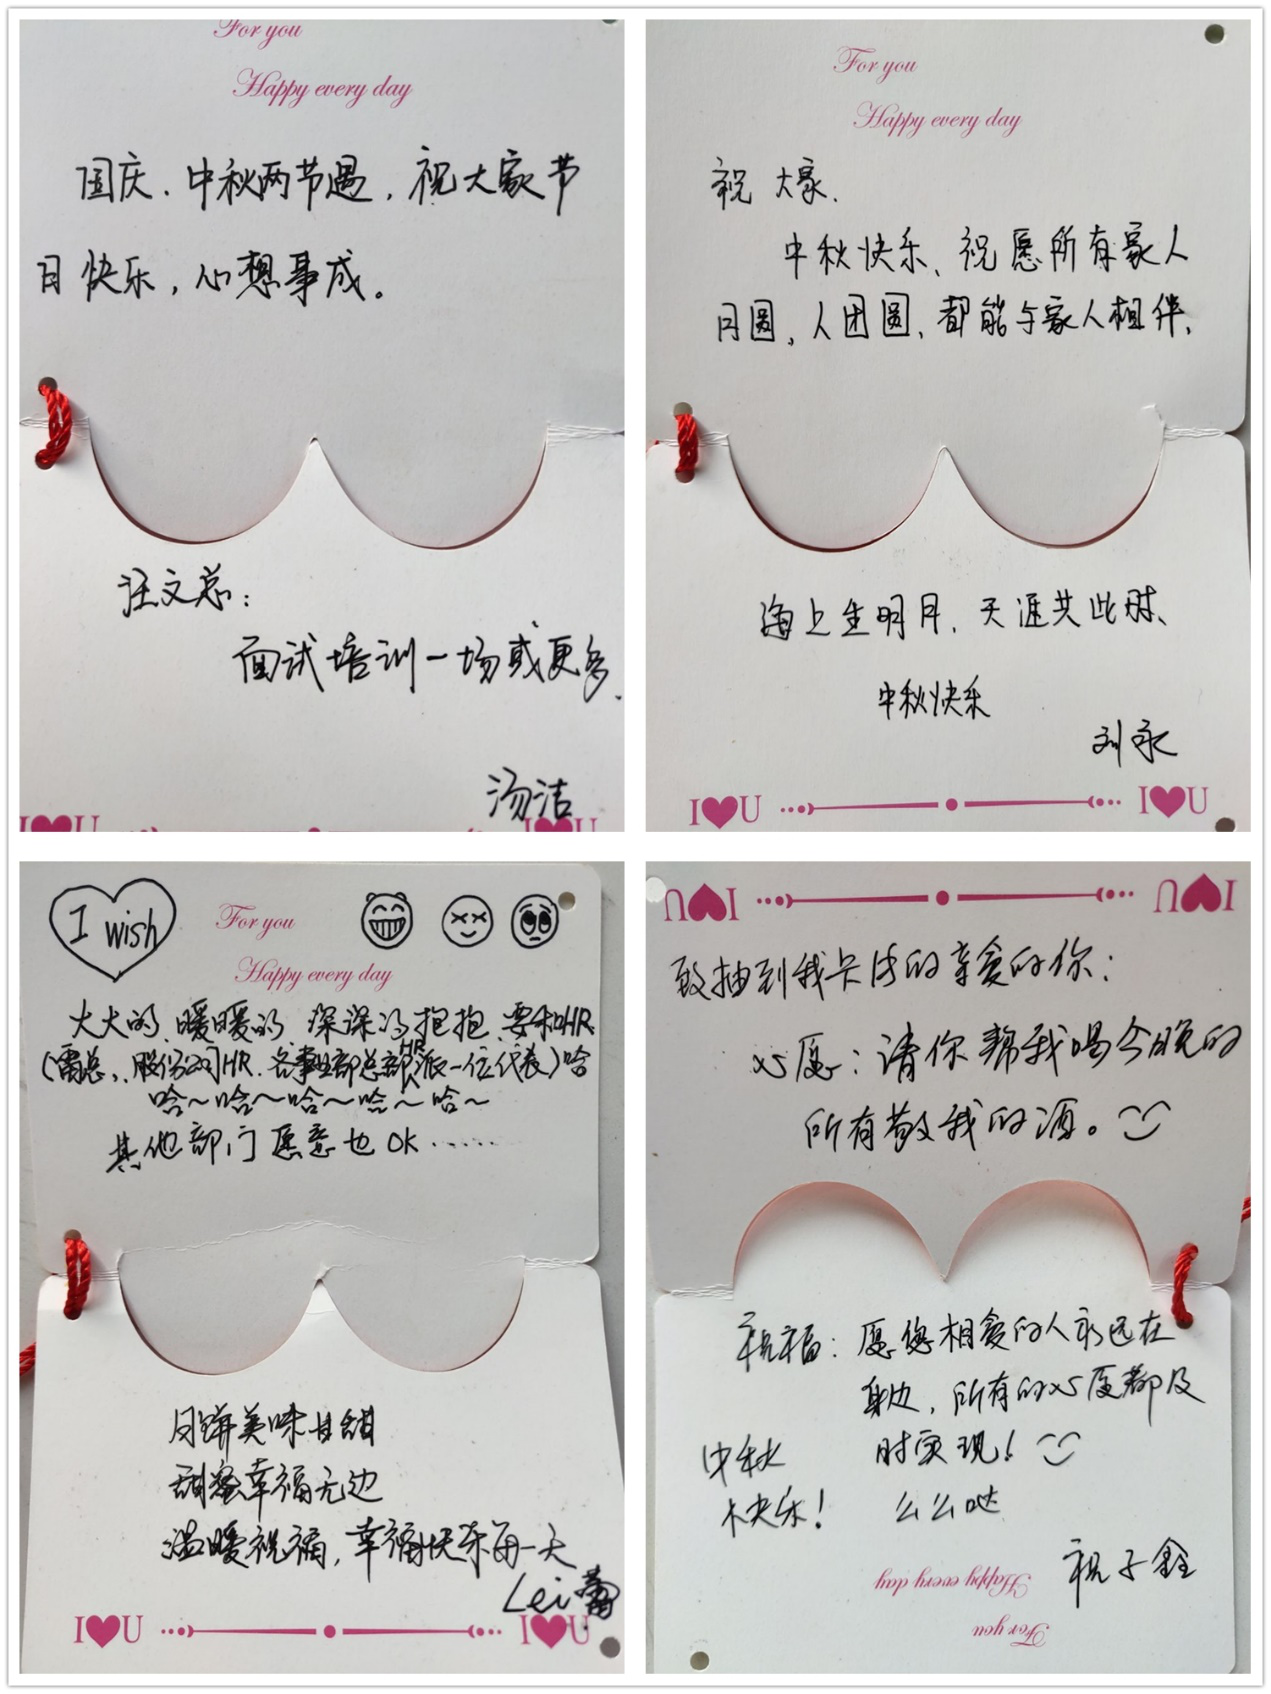 For you
Happy every day
国庆、中秋两节遇，祝大家节
日快乐，心想事成。
汪文总：
面试培训一场或更多.
汤洁
I❤U I❤U
For you
Happy every day
祝大家、
中秋快乐、祝愿所有家人
月圆、人团圆、都能与家人相伴、
海上生明月、天涯共此时、
中秋快乐
刘永
I❤U I❤U
I wish
For you
Happy every day
大大的、暖暖的、深深的抱抱、要和HR
(雷总、股份公司HR、各事业部总部HR派一位代表)哈
哈～哈～哈～哈～哈～
其他部门愿意也OK……
月饼美味甘甜
甜蜜幸福无边
温暖祝福，幸福快乐每一天
Lei蕾
I❤U I❤U
I❤U I❤U
致抽到我卡片的亲爱的你：
心愿：请你帮我喝今晚的
所有敬我的酒。
祝福：愿您相爱的人永远在
身边，所有的心愿都及
时实现！
中秋
快乐！
么么哒
祝子鑫
Happy every day
For you